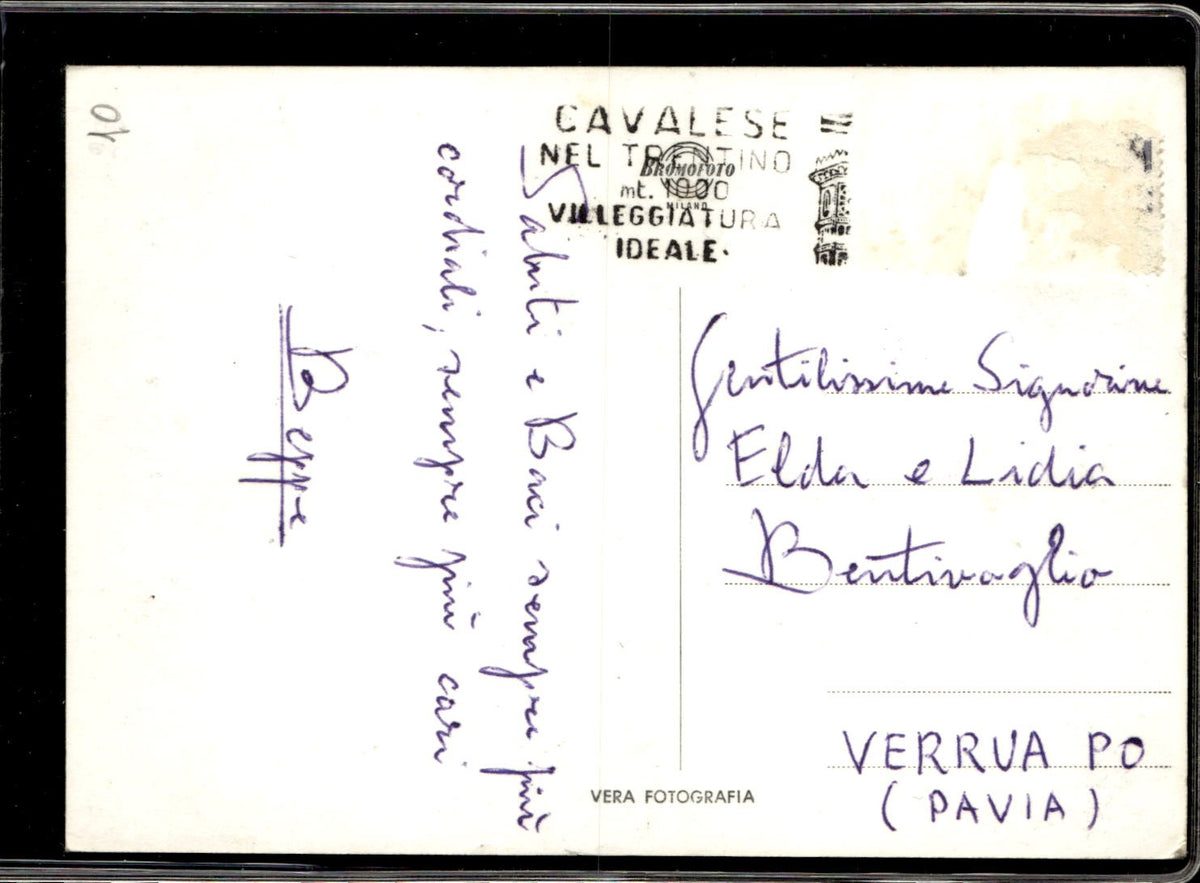 CAVALESE
NEL TRENTINO
mt. 1000
VILLEGGIATURA
IDEALE.
BROMOFOTO
MILANO
Saluti e Baci sempre più
cordiali, sempre più cari
Beppe
Gentilissime Signorine
Elda e Lidia
Bentivoglio
VERRUA PO
(PAVIA)
VERA FOTOGRAFIA